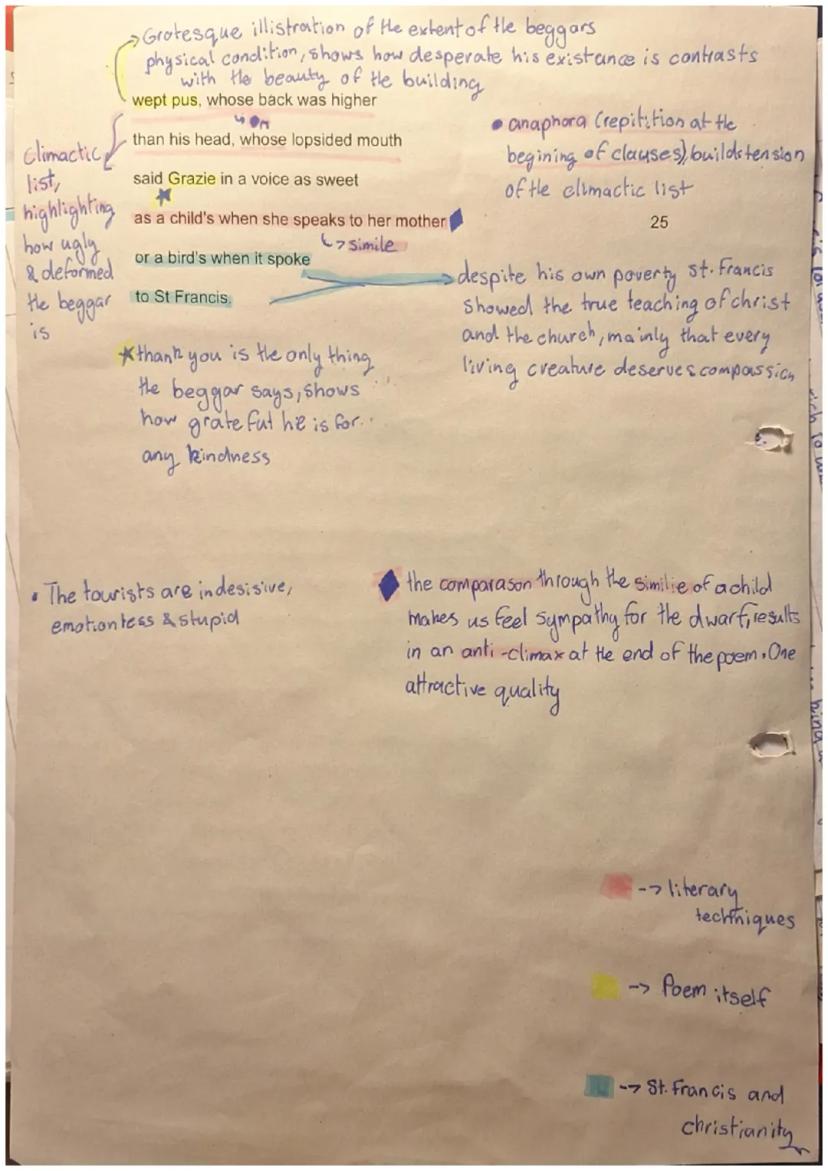 Grotesque illistration of the extent of the beggars
physical condition, shows how desperate his existance is contrasts
with the beauty of the building
wept pus, whose back was higher
than his head, whose lopsided mouth
said Grazie in a voice as sweet
as a child's when she speaks to her mother
25
↳ simile
or a bird's when it spoke
to St Francis.
Climactic
list,
highlighting
how ugly
& deformed
the beggar
is
• anaphora (repitition at the
begining of clauses), builds tension
of the climactic list
despite his own poverty St. Francis
showed the true teaching of christ
and the church, mainly that every
living creature deserves compassion
thank you is the only thing
the beggar says, shows
how grateful he is for
any kindness
• The tourists are indesisive,
emotionless & stupid
the comparason through the similie of a child
makes us feel sympathy for the dwarf, results
in an anti-climax at the end of the poem. One
attractive quality
-> literary
techniques
-> Poem itself
-> St. Francis and
christianity